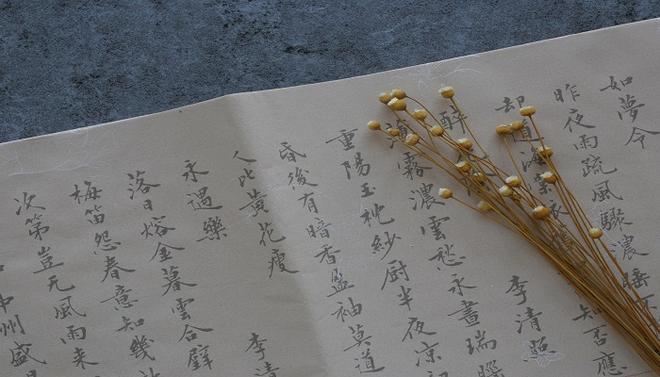 如夢令
昨夜雨疏風驟濃睡不
却道海棠依舊知否應
醉李清照
霧濃雲愁永晝瑞腦
重陽玉枕紗厨半夜凉初
昏後有暗香盈袖莫道
人比黃花瘦
永遇樂 李清
落日熔金暮雲合璧
梅笛怨春意知幾
次第豈无風雨来
中州盛